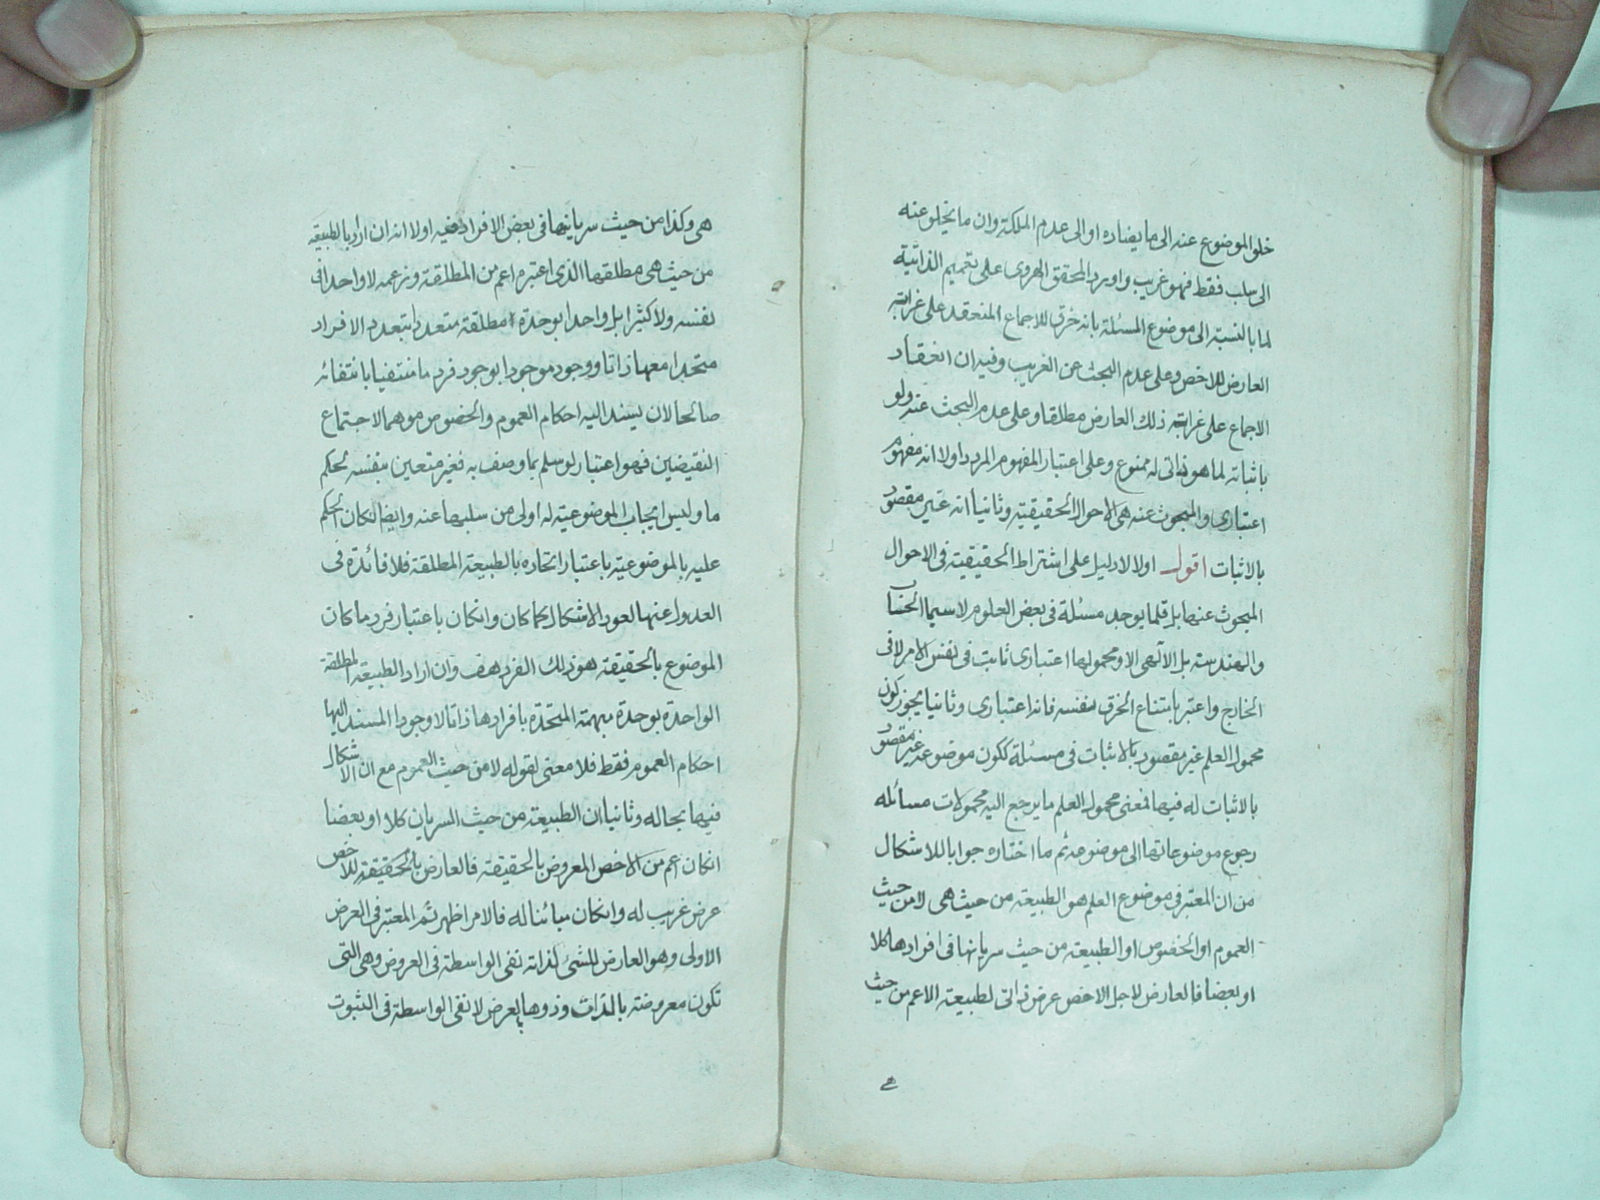 خلو الموضوع عنه الى ما يضاده او الى عدم الملكة وان ما يخلو عنه
الى سلب فقط فهو غريب واورد المحقق الهروى على تعميم الذاتية
لما بالنسبة الى موضوع المسئلة بانه خرق للاجماع المنعقد على غرابة
العارض للاخص وعلى عدم البحث عن الغريب وفيه ان انعقاد
الاجماع على غرابة ذلك العارض مطلقا وعلى عدم البحث عنه ولو
باثباته لما هو ذاتى له ممنوع وعلى اعتبار المفهوم المردد اولا انه مفهوم
اعتبارى والمبحوث عنه هى الاحوال الحقيقية وثانيا انه غير مقصود
بالاثبات اقول اولا لا دليل على اشتراط الحقيقية فى الاحوال
المبحوث عنها بل قلما يوجد مسئلة فى بعض العلوم لاسيما الحساب
والهندسة بل الآلهى الا ومحمولها اعتبارى ثابت فى نفس الامر لا فى
الخارج واعتبر بامتناع الخرق بنفسه فانه اعتبارى وثانيا يجوز كون
محمول العلم غير مقصود بالاثبات فى مسئلة ككون موضوعه غير مقصود
بالاثبات له فيها فمعنى محمول العلم ما يرجع اليه محمولات مسائله
رجوع موضوعاتها الى موضوعه ثم ما اختاره جوابا للاشكال
من ان المعتبر فى موضوع العلم هو الطبيعة من حيث هى لا من حيث
العموم او الخصوص او الطبيعة من حيث سريانها فى افرادها كلا
او بعضا فالعارض لاجل الاخص عرض ذاتى لطبيعة الاعم من حيث
هى
هى وكذا من حيث سريانها فى بعض الافراد ففيه اولا انه ان اراد بالطبيعة
من حيث هى مطلقها الذى اعتبره اعم من المطلقة وزعمه لا واحدا فى
نفسه ولا كثيرا بل واحدا بوحدة مطلقة متعددا بتعدد الافراد
متحدا معها ذاتا ووجودا موجودا بوجود فرد ما منتفيا بانتفائه
صالحا لان يسند اليه احكام العموم والخصوص موهما لاجتماع
النقيضين فهو اعتبار لو سلم بما وصف به فغير متعين بنفسه لحكم
ما وليس ايجاب الموضوعية له اولى من سلبها عنه وايضا لكان الحكم
عليه بالموضوعية باعتبار اتحاده بالطبيعة المطلقة فلا فائدة فى
العدول عنها لعود الاشكال كما كان وان كان باعتبار فرد ما كان
الموضوع بالحقيقة هو ذلك الفرد هف وان اراد الطبيعة المطلقة
الواحدة بوحدة مبهمة المتحدة بافرادها ذاتا لا وجودا المسند اليها
احكام العموم فقط فلا معنى لقوله لا من حيث العموم مع ان الاشكال
فيها بحاله وثانيا ان الطبيعة من حيث السريان كلا او بعضا
ان كان اعم من الاخص المعروض بالحقيقة فالعارض بالحقيقة للاخص
عرض غريب له وان كان مبائنا له فالامر اظهر ثم المعتبر فى العرض
الاولى وهو العارض للشئ لذاته نفى الواسطة فى العروض وهى التى
تكون معروضة بالذات وذوها بالعرض لا نفى الواسطة فى الثبوت